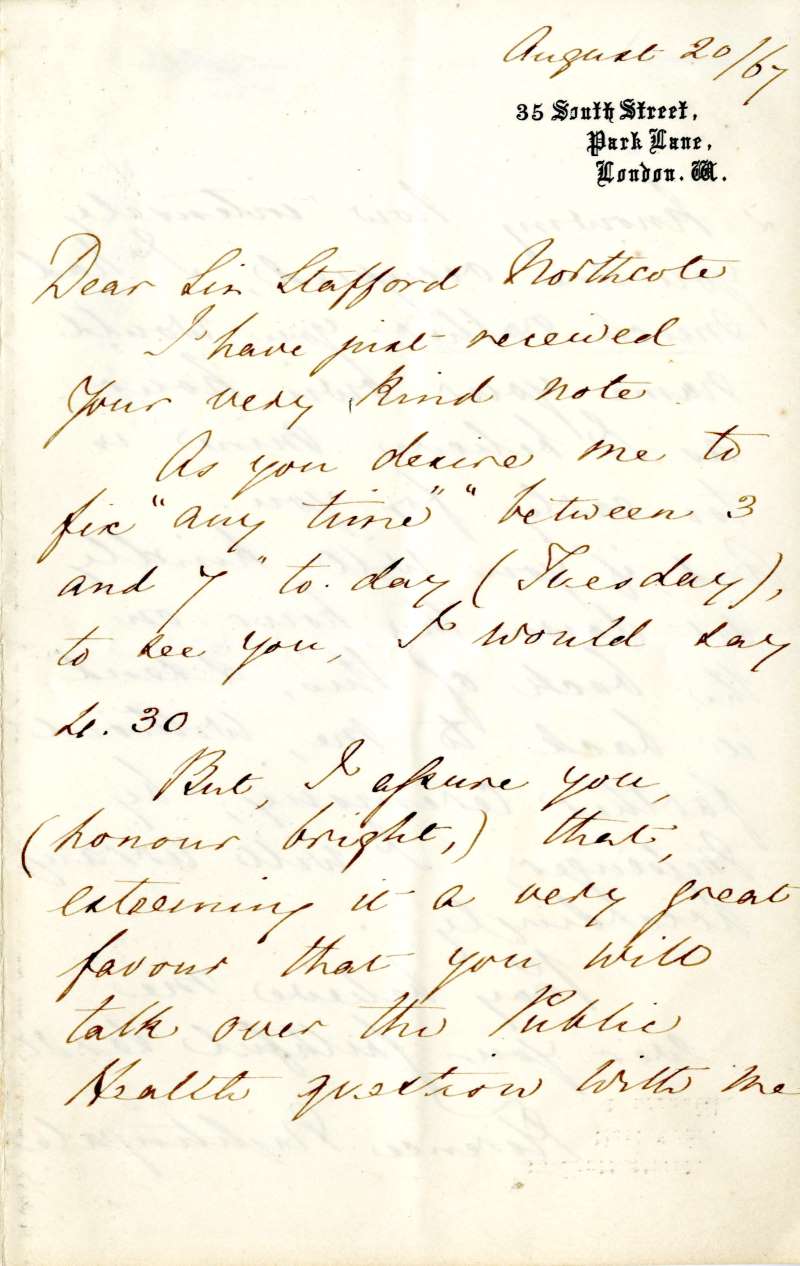 August 20/67
35 South Street,
Park Lane,
London. W.
Dear Sir Stafford Northcote
I have just received
your very kind note
As you desire me to
fix "any time" "between 3
and 7" to-day (Tuesday),
to see you, I would say
4.30
But, I assure you,
(honour bright,) that,
esteeming it a very great
favour that you will
talk over the Public
Health question with me